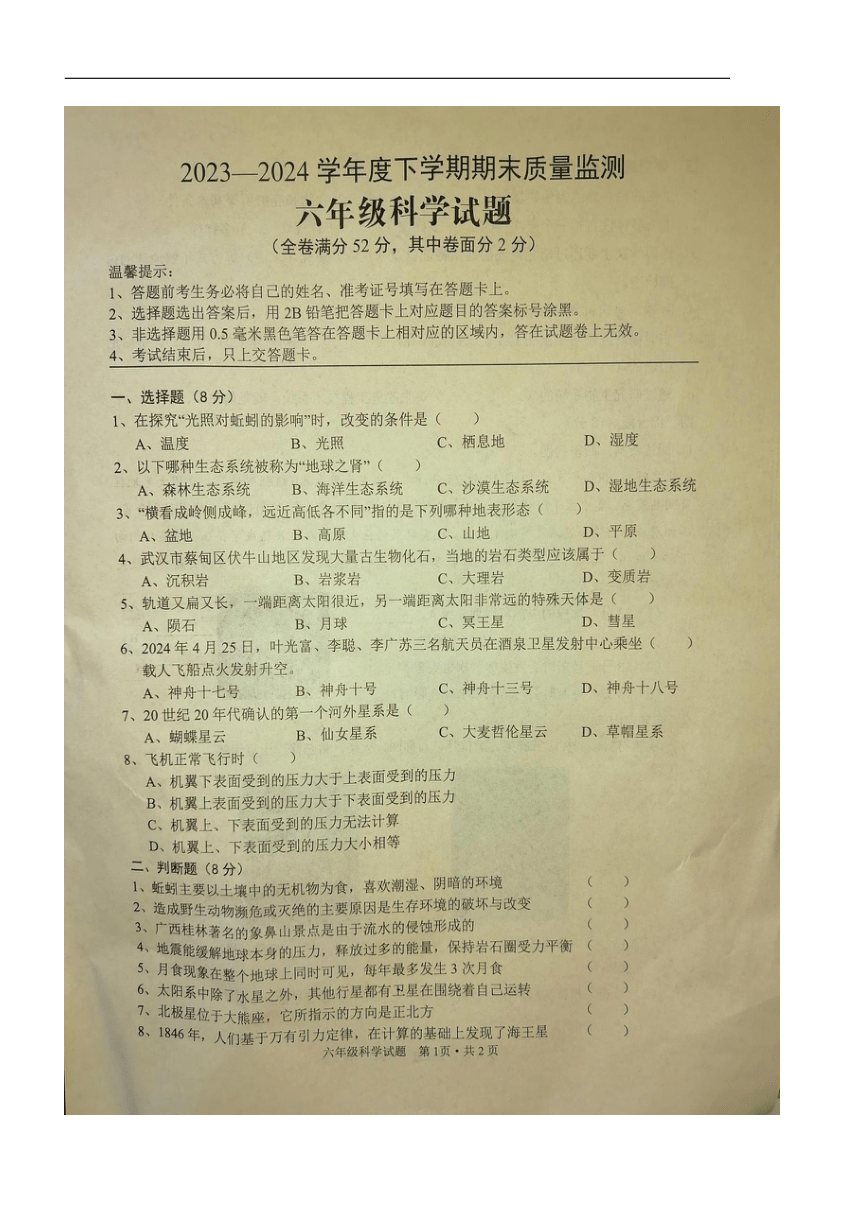 2023—2024 学年度下学期期末质量监测
六年级科学试题
（全卷满分 52 分，其中卷面分 2 分）
温馨提示：
1、答题前考生务必将自己的姓名、准考证号填写在答题卡上。
2、选择题选出答案后，用 2B 铅笔把答题卡上对应题目的答案标号涂黑。
3、非选择题用 0.5 毫米黑色笔答在答题卡上相对应的区域内，答在试题卷上无效。
4、考试结束后，只上交答题卡。
一、选择题（8 分）
1、在探究“光照对蚯蚓的影响”时，改变的条件是（  ）
A、温度 B、光照 C、栖息地 D、湿度
2、以下哪种生态系统被称为“地球之肾”（  ）
A、森林生态系统 B、海洋生态系统 C、沙漠生态系统 D、湿地生态系统
3、“横看成岭侧成峰，远近高低各不同”指的是下列哪种地表形态（  ）
A、盆地 B、高原 C、山地 D、平原
4、武汉市蔡甸区伏牛山地区发现大量古生物化石，当地的岩石类型应该属于（  ）
A、沉积岩 B、岩浆岩 C、大理岩 D、变质岩
5、轨道又扁又长，一端距离太阳很近，另一端距离太阳非常远的特殊天体是（  ）
A、陨石 B、月球 C、冥王星 D、彗星
6、2024 年 4 月 25 日，叶光富、李聪、李广苏三名航天员在酒泉卫星发射中心乘坐（  ）
载人飞船点火发射升空。
A、神舟十七号 B、神舟十号 C、神舟十三号 D、神舟十八号
7、20 世纪 20 年代确认的第一个河外星系是（  ）
A、蝴蝶星云 B、仙女星系 C、大麦哲伦星云 D、草帽星系
8、飞机正常飞行时（  ）
A、机翼下表面受到的压力大于上表面受到的压力
B、机翼上表面受到的压力大于下表面受到的压力
C、机翼上、下表面受到的压力无法计算
D、机翼上、下表面受到的压力大小相等
二、判断题（8 分）
1、蚯蚓主要以土壤中的无机物为食，喜欢潮湿、阴暗的环境 （  ）
2、造成野生动物濒危或灭绝的主要原因是生存环境的破坏与改变 （  ）
3、广西桂林著名的象鼻山景点是由于流水的侵蚀形成的 （  ）
4、地震能缓解地球本身的压力，释放过多的能量，保持岩石圈受力平衡 （  ）
5、月食现象在整个地球上同时可见，每年最多发生 3 次月食 （  ）
6、太阳系中除了水星之外，其他行星都有卫星在围绕着自己运转 （  ）
7、北极星位于大熊座，它所指示的方向是正北方 （  ）
8、1846 年，人们基于万有引力定律，在计算的基础上发现了海王星 （  ）
六年级科学试题 第 1页·共 2 页